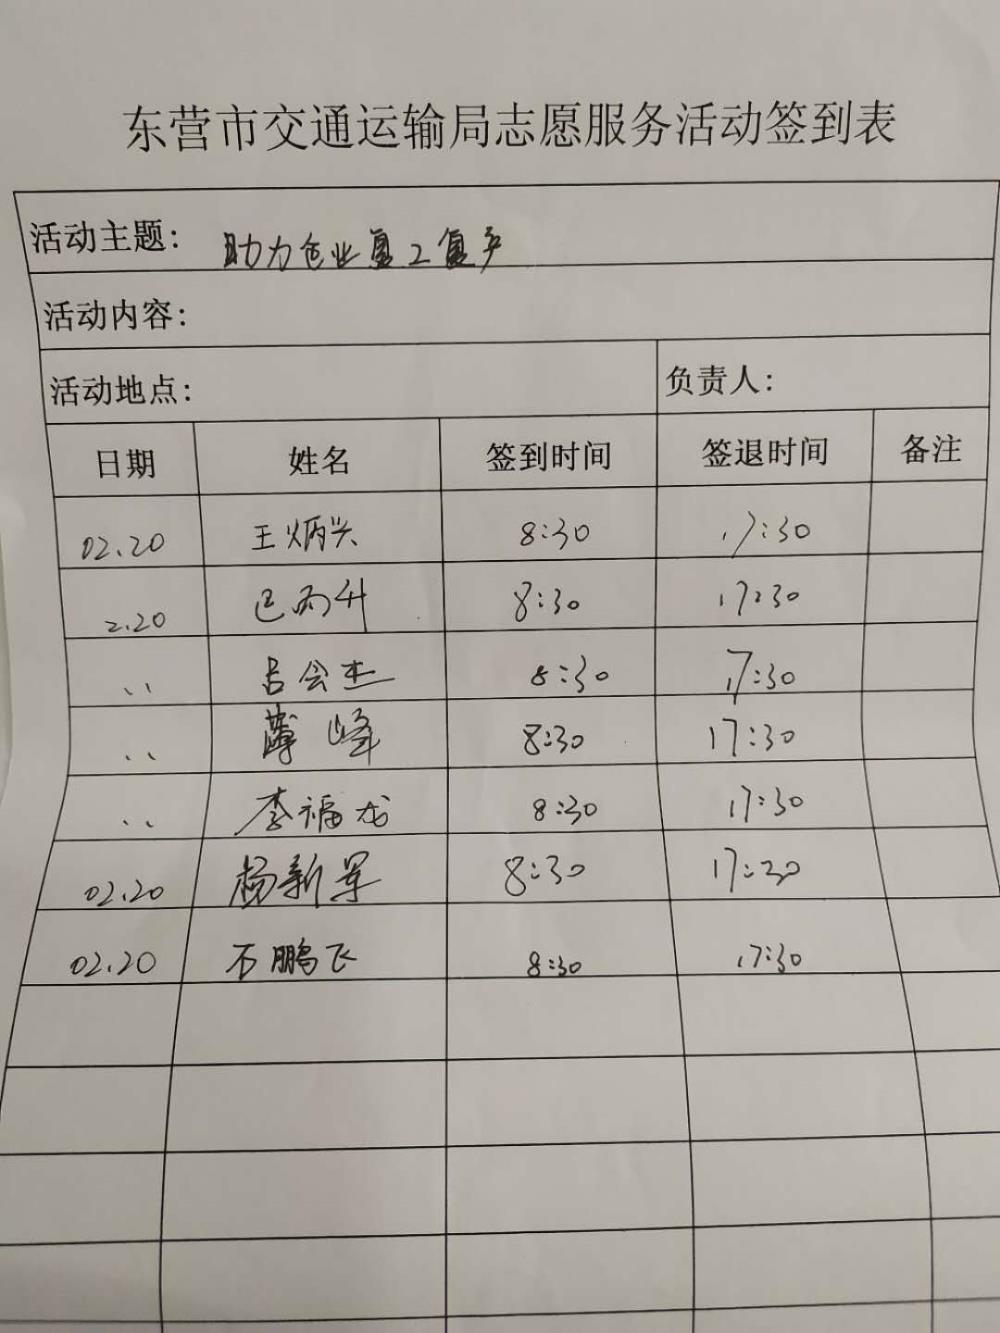 东营市交通运输局志愿服务活动签到表
活动主题: 助力企业复工复产
活动内容:
活动地点: 负责人:
日期 姓名 签到时间 签退时间 备注
02.20 王炳兴 8:30 17:30
2.20 巴丙升 8:30 17:30
、、 吕会杰 8:30 17:30
、、 薄峰 8:30 17:30
、、 李福龙 8:30 17:30
02.20 杨新军 8:30 17:30
02.20 石鹏飞 8:30 17:30